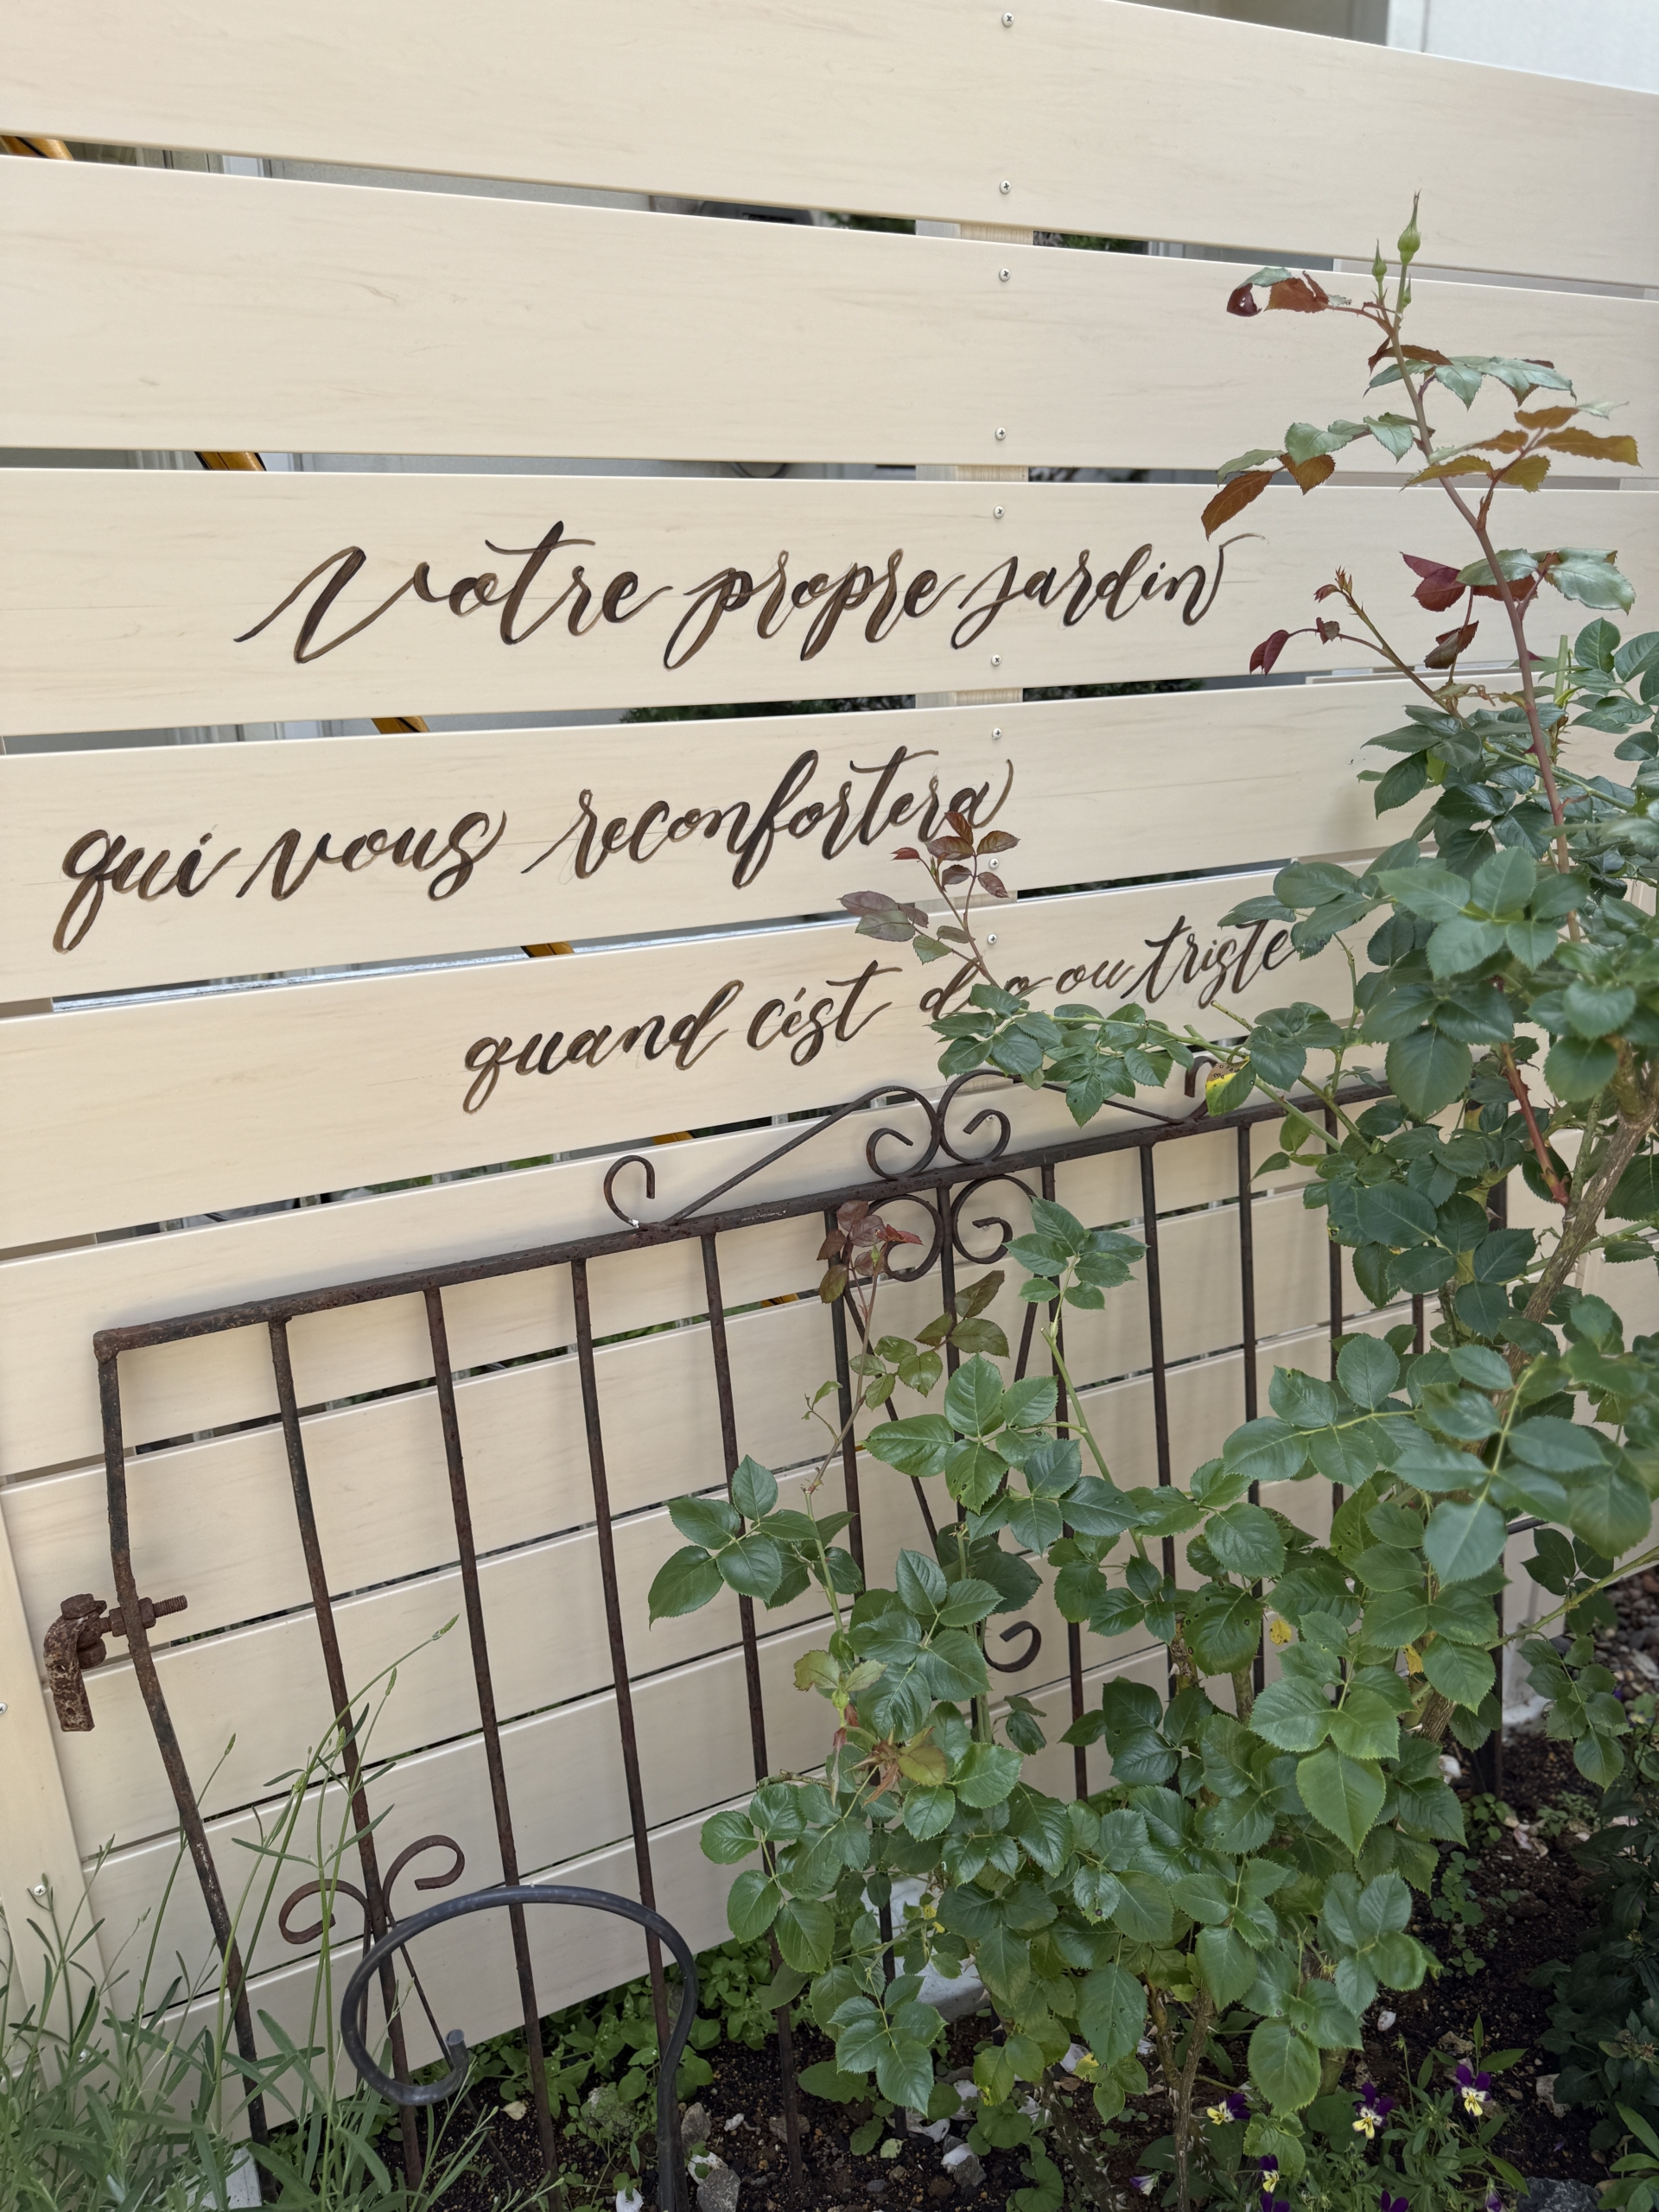 Votre propre jardin
qui vous reconfortera
quand c'est ou triste